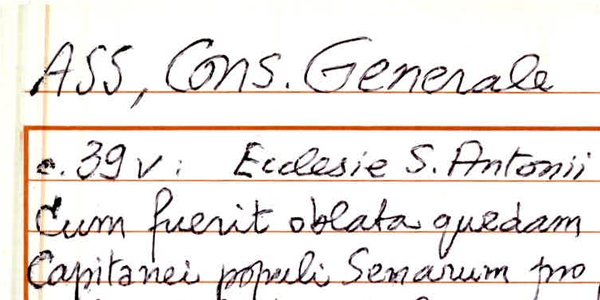 ASS, Cons. Generale
c. 39v: Ecclesie S. Antonii
Cum fuerit oblata quedam
Capitanei populi Senarum pro